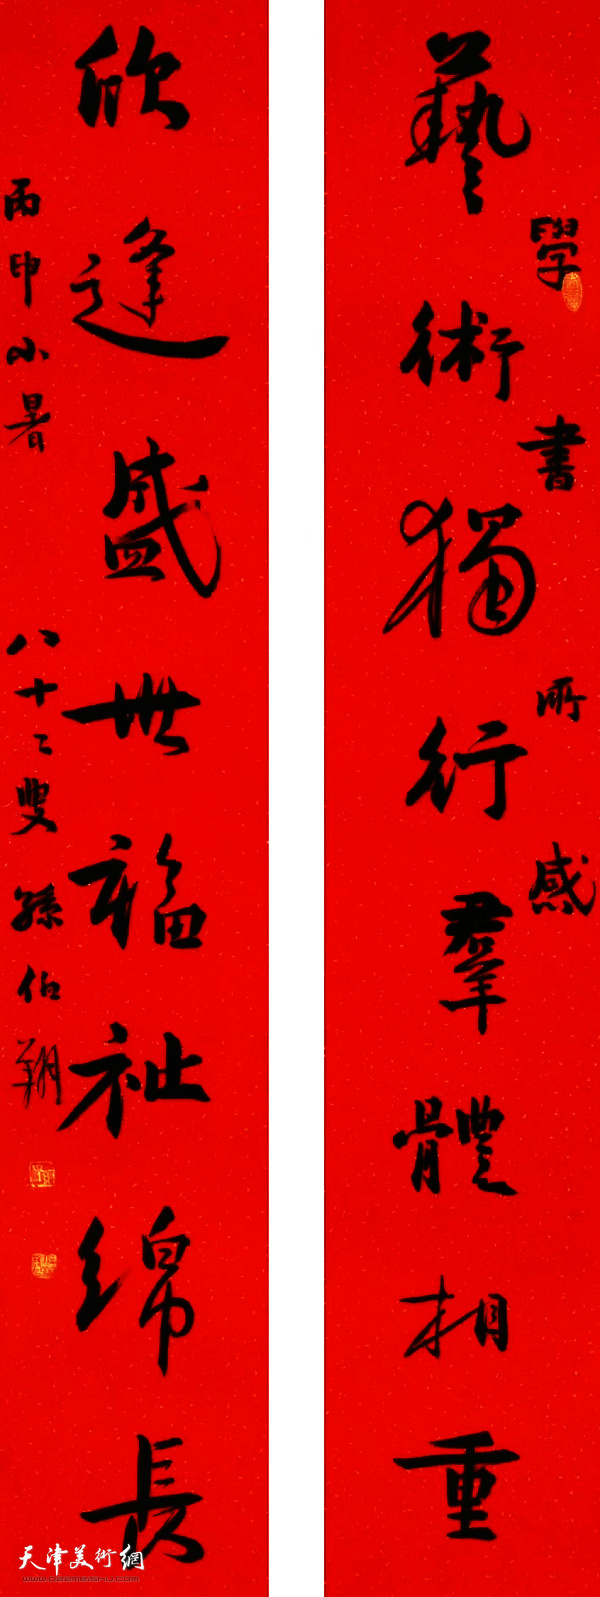 藝術獨行羣體相重
學書所感
欣逢盛世福祉綿長
丙申小暑
八十二叟孫伯翔
天津美術網